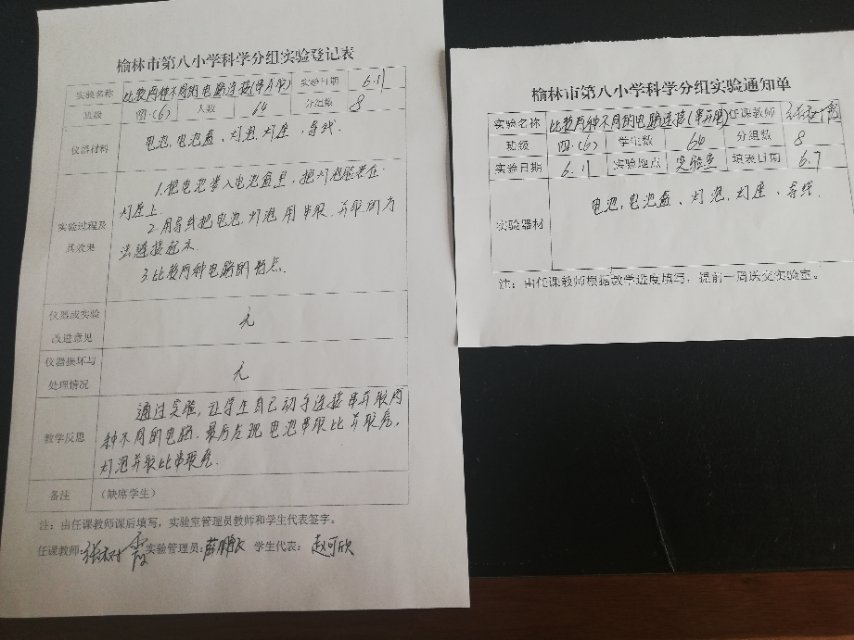 榆林市第八小学科学分组实验登记表
实验名称 比较两种不同的电路连接(串并联) 实验日期 6.11
班级 四·(6) 人数 64 分组数 8
仪器材料 电池,电池盒、灯泡,灯座,导线.
实验过程及其效果
1.把电池装入电池盒里,把灯泡安装在
灯座上.
2.用导线把电池,灯泡用串联、并联的方
法连接起来.
3.比较两种电路的特点.
仪器或实验改进意见 无
仪器损坏与处理情况 无
教学反思
通过实验,让学生自己动手连接串并联两
种不同的电路.最后发现电池串联比并联亮,
灯泡并联比串联亮.
备注 (缺席学生)
注:由任课教师课后填写,实验室管理员教师和学生代表签字。
任课教师: 实验管理员: 学生代表: 赵可欣
榆林市第八小学科学分组实验通知单
实验名称 比较两种不同的电路连接(串并联) 任课教师
班级 四·(6) 学生数 64 分组数 8
实验日期 6.11 实验地点 实验室 填表日期 6.7
实验器材 电池,电池盒、灯泡,灯座、导线.
注:由任课教师根据教学进度填写,提前一周送交实验室。